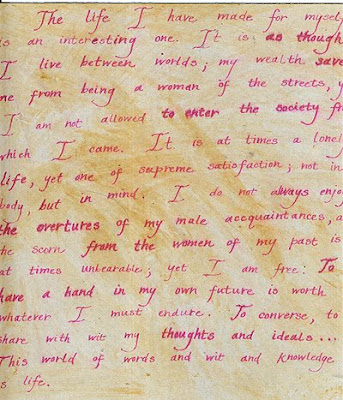 The life I have made for mysel
is an interesting one. It is as though
I live between worlds; my wealth save
me from being a woman of the streets, y
I am not allowed to enter the society fr
which I came. It is at times a lonel
life, yet one of supreme satisfaction; not in
body, but in mind. I do not always enjo
the overtures of my male accquaintances, a
he scorn from the women of my past is
at times unbearable; yet I am free: To
have a hand in my own future is worth
whatever I must endure. To converse, to
share with wit my thoughts and ideals...
This world of words and wit and knowledge
s life.